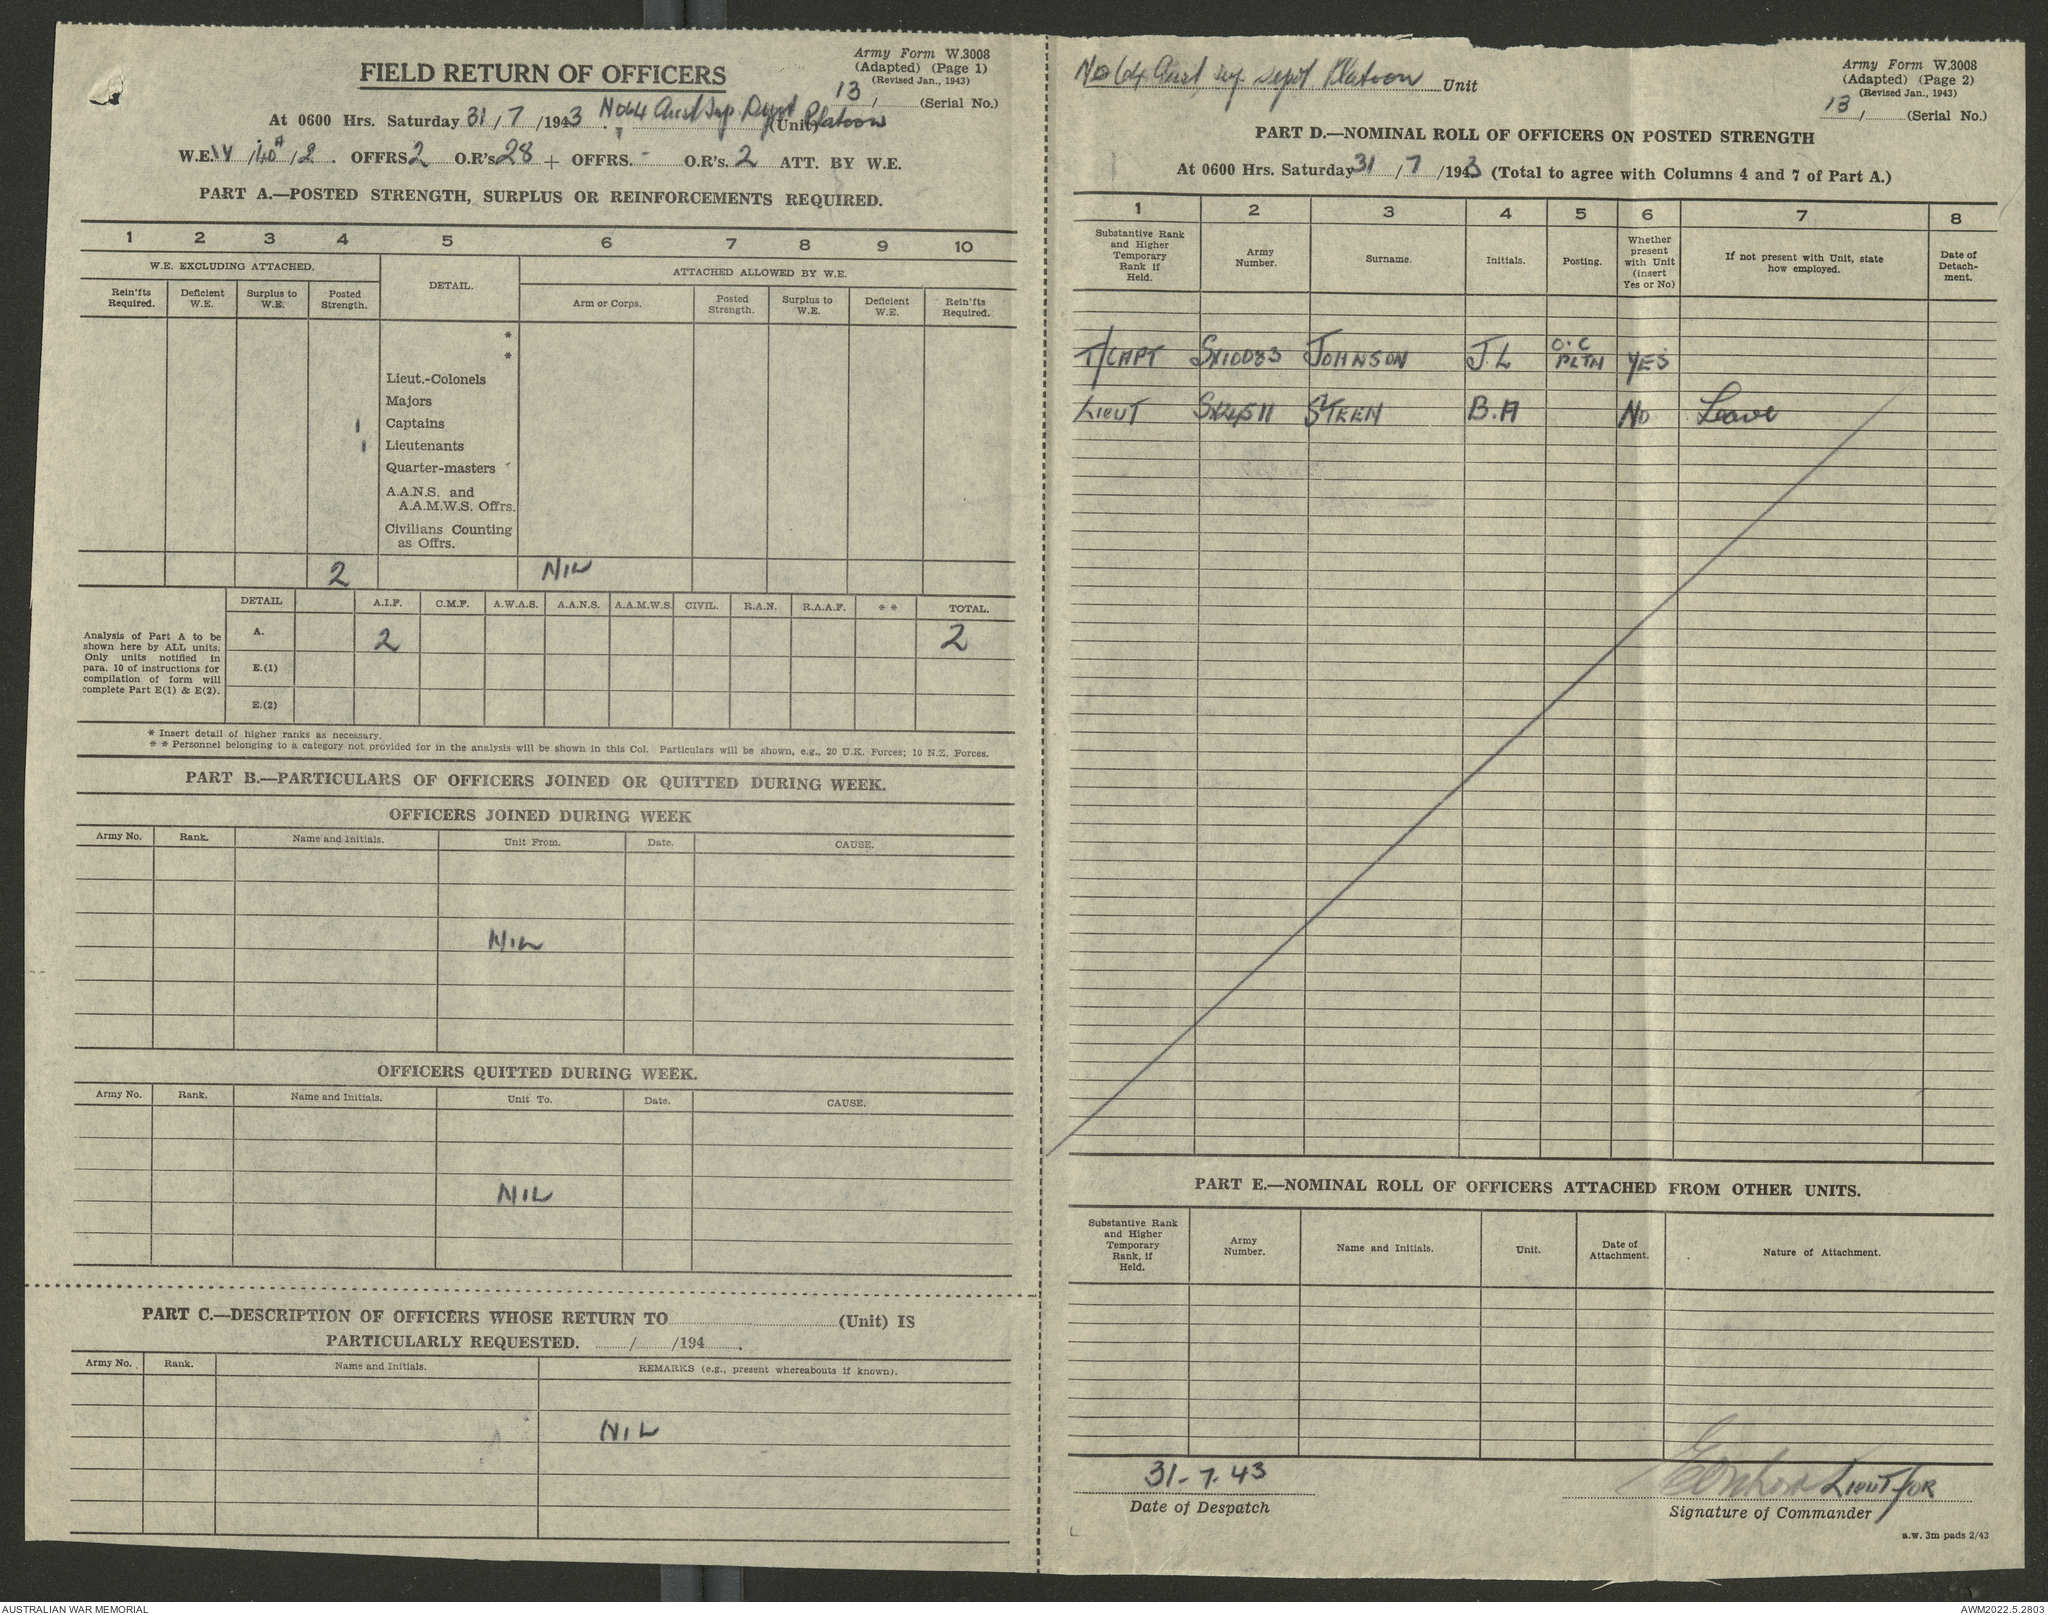 Army Form W.3008
(Adapted) (Page 1)
(Revised Jan., 1943)
FIELD RETURN OF OFFICERS
13 / (Serial No.)
At 0600 Hrs. Saturday 31 / 7 /1943. No 64 Aust Sup. Depot Platoon (Unit)
W.E. IV /140A /2. OFFRS 2 O.R's. 28 + OFFRS. - O.R's. 2 ATT. BY W.E.
PART A.—POSTED STRENGTH, SURPLUS OR REINFORCEMENTS REQUIRED.
1 2 3 4 5 6 7 8 9 10
W.E. EXCLUDING ATTACHED. DETAIL. ATTACHED ALLOWED BY W.E.
Rein'fts Required. Deficient W.E. Surplus to W.E. Posted Strength. Arm or Corps. Posted Strength. Surplus to W.E. Deficient W.E. Rein'fts Required.
*
*
Lieut.-Colonels
Majors
1 Captains
1 Lieutenants
Quarter-masters
A.A.N.S. and
A.A.M.W.S. Offrs.
Civilians Counting
as Offrs.
2 NIL
DETAIL A.I.F. C.M.F. A.W.A.S. A.A.N.S. A.A.M.W.S. CIVIL. R.A.N. R.A.A.F. * * TOTAL.
Analysis of Part A to be
shown here by ALL units.
Only units notified in
para. 10 of instructions for
compilation of form will
complete Part E(1) & E(2).
A. 2 2
E.(1)
E.(2)
* Insert detail of higher ranks as necessary.
* * Personnel belonging to a category not provided for in the analysis will be shown in this Col. Particulars will be shown, e.g., 20 U.K. Forces; 10 N.Z. Forces.
PART B.—PARTICULARS OF OFFICERS JOINED OR QUITTED DURING WEEK.
OFFICERS JOINED DURING WEEK
Army No. Rank. Name and Initials. Unit From. Date. CAUSE.
NIL
OFFICERS QUITTED DURING WEEK.
Army No. Rank. Name and Initials. Unit To. Date. CAUSE.
NIL
PART C.—DESCRIPTION OF OFFICERS WHOSE RETURN TO (Unit) IS
PARTICULARLY REQUESTED. / /194 .
Army No. Rank. Name and Initials. REMARKS (e.g., present whereabouts if known).
NIL
No 64 Aust Sup. Depot Platoon Unit
Army Form W.3008
(Adapted) (Page 2)
(Revised Jan., 1943)
13 / (Serial No.)
PART D.—NOMINAL ROLL OF OFFICERS ON POSTED STRENGTH
At 0600 Hrs. Saturday 31 / 7 /1943 (Total to agree with Columns 4 and 7 of Part A.)
1 2 3 4 5 6 7 8
Substantive Rank and Higher Temporary Rank if Held. Army Number. Surname. Initials. Posting. Whether present with Unit (insert Yes or No) If not present with Unit, state how employed. Date of Detach- ment.
T/CAPT SX10083 JOHNSON J.L O.C PLTN YES
LIEUT STEEN B.A NO Leave
PART E.—NOMINAL ROLL OF OFFICERS ATTACHED FROM OTHER UNITS.
Substantive Rank and Higher Temporary Rank, if Held. Army Number. Name and Initials. Unit. Date of Attachment. Nature of Attachment.
31-7-43
Date of Despatch
LIEUT/FOR
Signature of Commander
a.w. 3m pads 2/43
AUSTRALIAN WAR MEMORIAL
AWM2022.5.2803